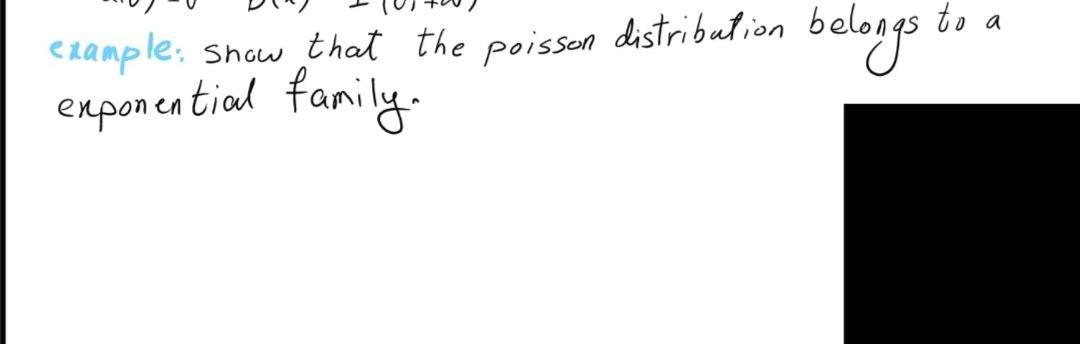 example: show that the poisson distribution belongs to a
exponential family.